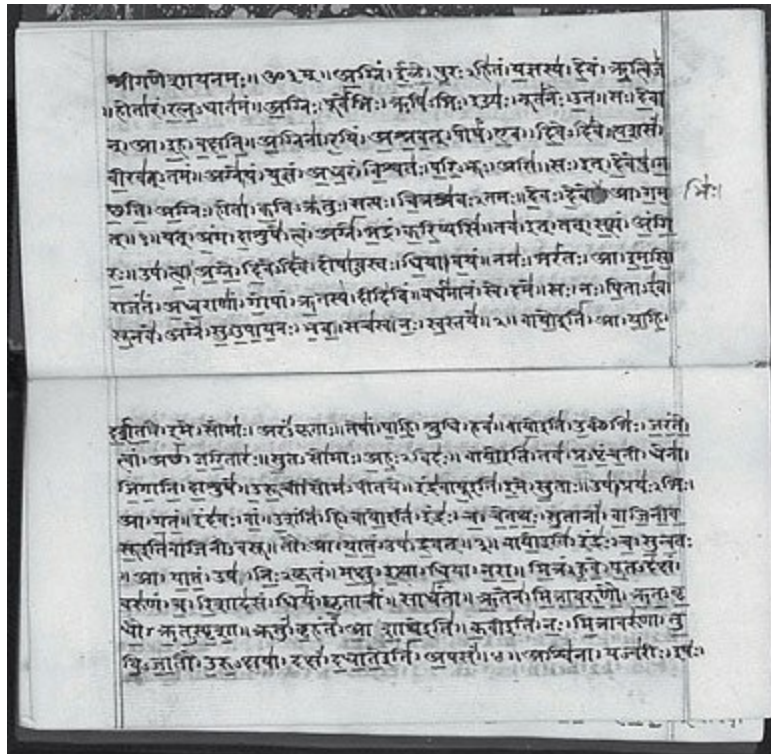 श्रीगणेशायनमः॥ॐ३म्॥अग्निं। ईळे। पुरःऽहितं। यज्ञस्य। देवं। ऋत्विजं
॥होतारं। रत्नऽधातमं॥अग्निः। पूर्वेभिः। ऋषिऽभिः। ईड्यः। नूतनैः। उत॥सः। देवा
न्। आ। इह। वक्षति॥अग्निना। रयिं। अश्नवत्। पोषं। एव। दिवेऽदिवे॥यशसं।
वीरवत्ऽतमं॥अग्ने। यं। यज्ञं। अध्वरं। विश्वतः। परिऽभूः। असि॥सः। इत्। देवेषु। ग
च्छति। अग्निः। होता। कविऽक्रतुः। सत्यः। चित्रश्रवःऽतमः॥देवः। देवे आ। गम
भिः।
त्॥१॥यत्। अंग। दाशुषे। त्वं। अग्ने। भद्रं। करिष्यसि॥तव। इत्। तत्। सत्यं। अंगि
रः॥उप। त्वा। अग्ने। दिवेऽदिवे। दोषाऽवस्तः। धिया। वयं॥नमः। भरंतः। आ। इमसि॥
राजंतं। अध्वराणां। गोपां। ऋतस्य। दीदिविं॥वर्धमानं। स्वे। दमे॥सः। नः। पिताऽइव।
सूनवे। अग्ने। सुऽउपायनः। भव॥सचस्व। नः। स्वस्तये॥२॥वायोइति। आ। याहि।
दर्शत। इमे। सोमाः। अरंऽकृताः॥तेषां। पाहि। श्रुधि। हवं॥वायोइति। उक्थेभिः। जरंते।
त्वां। अच्छ। जरितारः॥सुतऽसोमाः। अहःऽविदः॥वायोइति। तव। प्रऽपृंचती। धेना।
जिगाति। दाशुषे॥उरूची। सोमऽपीतये॥इंद्रवायूइति। इमे। सुताः॥उप। प्रयःऽभिः।
आ। गतं॥इंदवः। वां। उशंति। हि॥वायोइति। इंद्रः। च। चेतथः। सुतानां। वाजिनीव
सूइतिवाजिनीऽवसू॥तौ। आ। यातं। उप। द्रवत्॥३॥वायोइति। इंद्रः। च। सुन्वतः
॥आ। यातं। उप। निःऽकृतं॥मक्षु। इत्था। धिया। नरा॥मित्रं। हुवे। पूतऽदक्षं।
वरुणं। च। रिशादसं॥धियं। घृताचीं॥साधंता॥ऋतेन। मित्रावरुणौ। ऋतऽवृ
धौ। ऋतऽस्पृशा॥क्रतुं। बृहंतं। आशाथेइति॥कवीइति। नः। मित्रावरुणा। तु
विऽजातौ। उरुऽक्षया॥दक्षं। दधातेइति। अपसं॥४॥अश्विना। यज्वरीः। इषः।